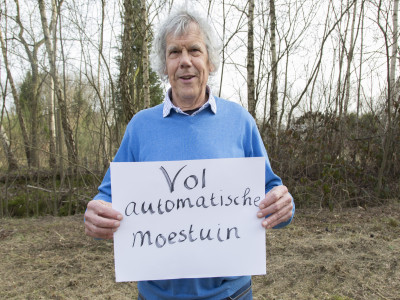 Vol
automatische
Moestuin